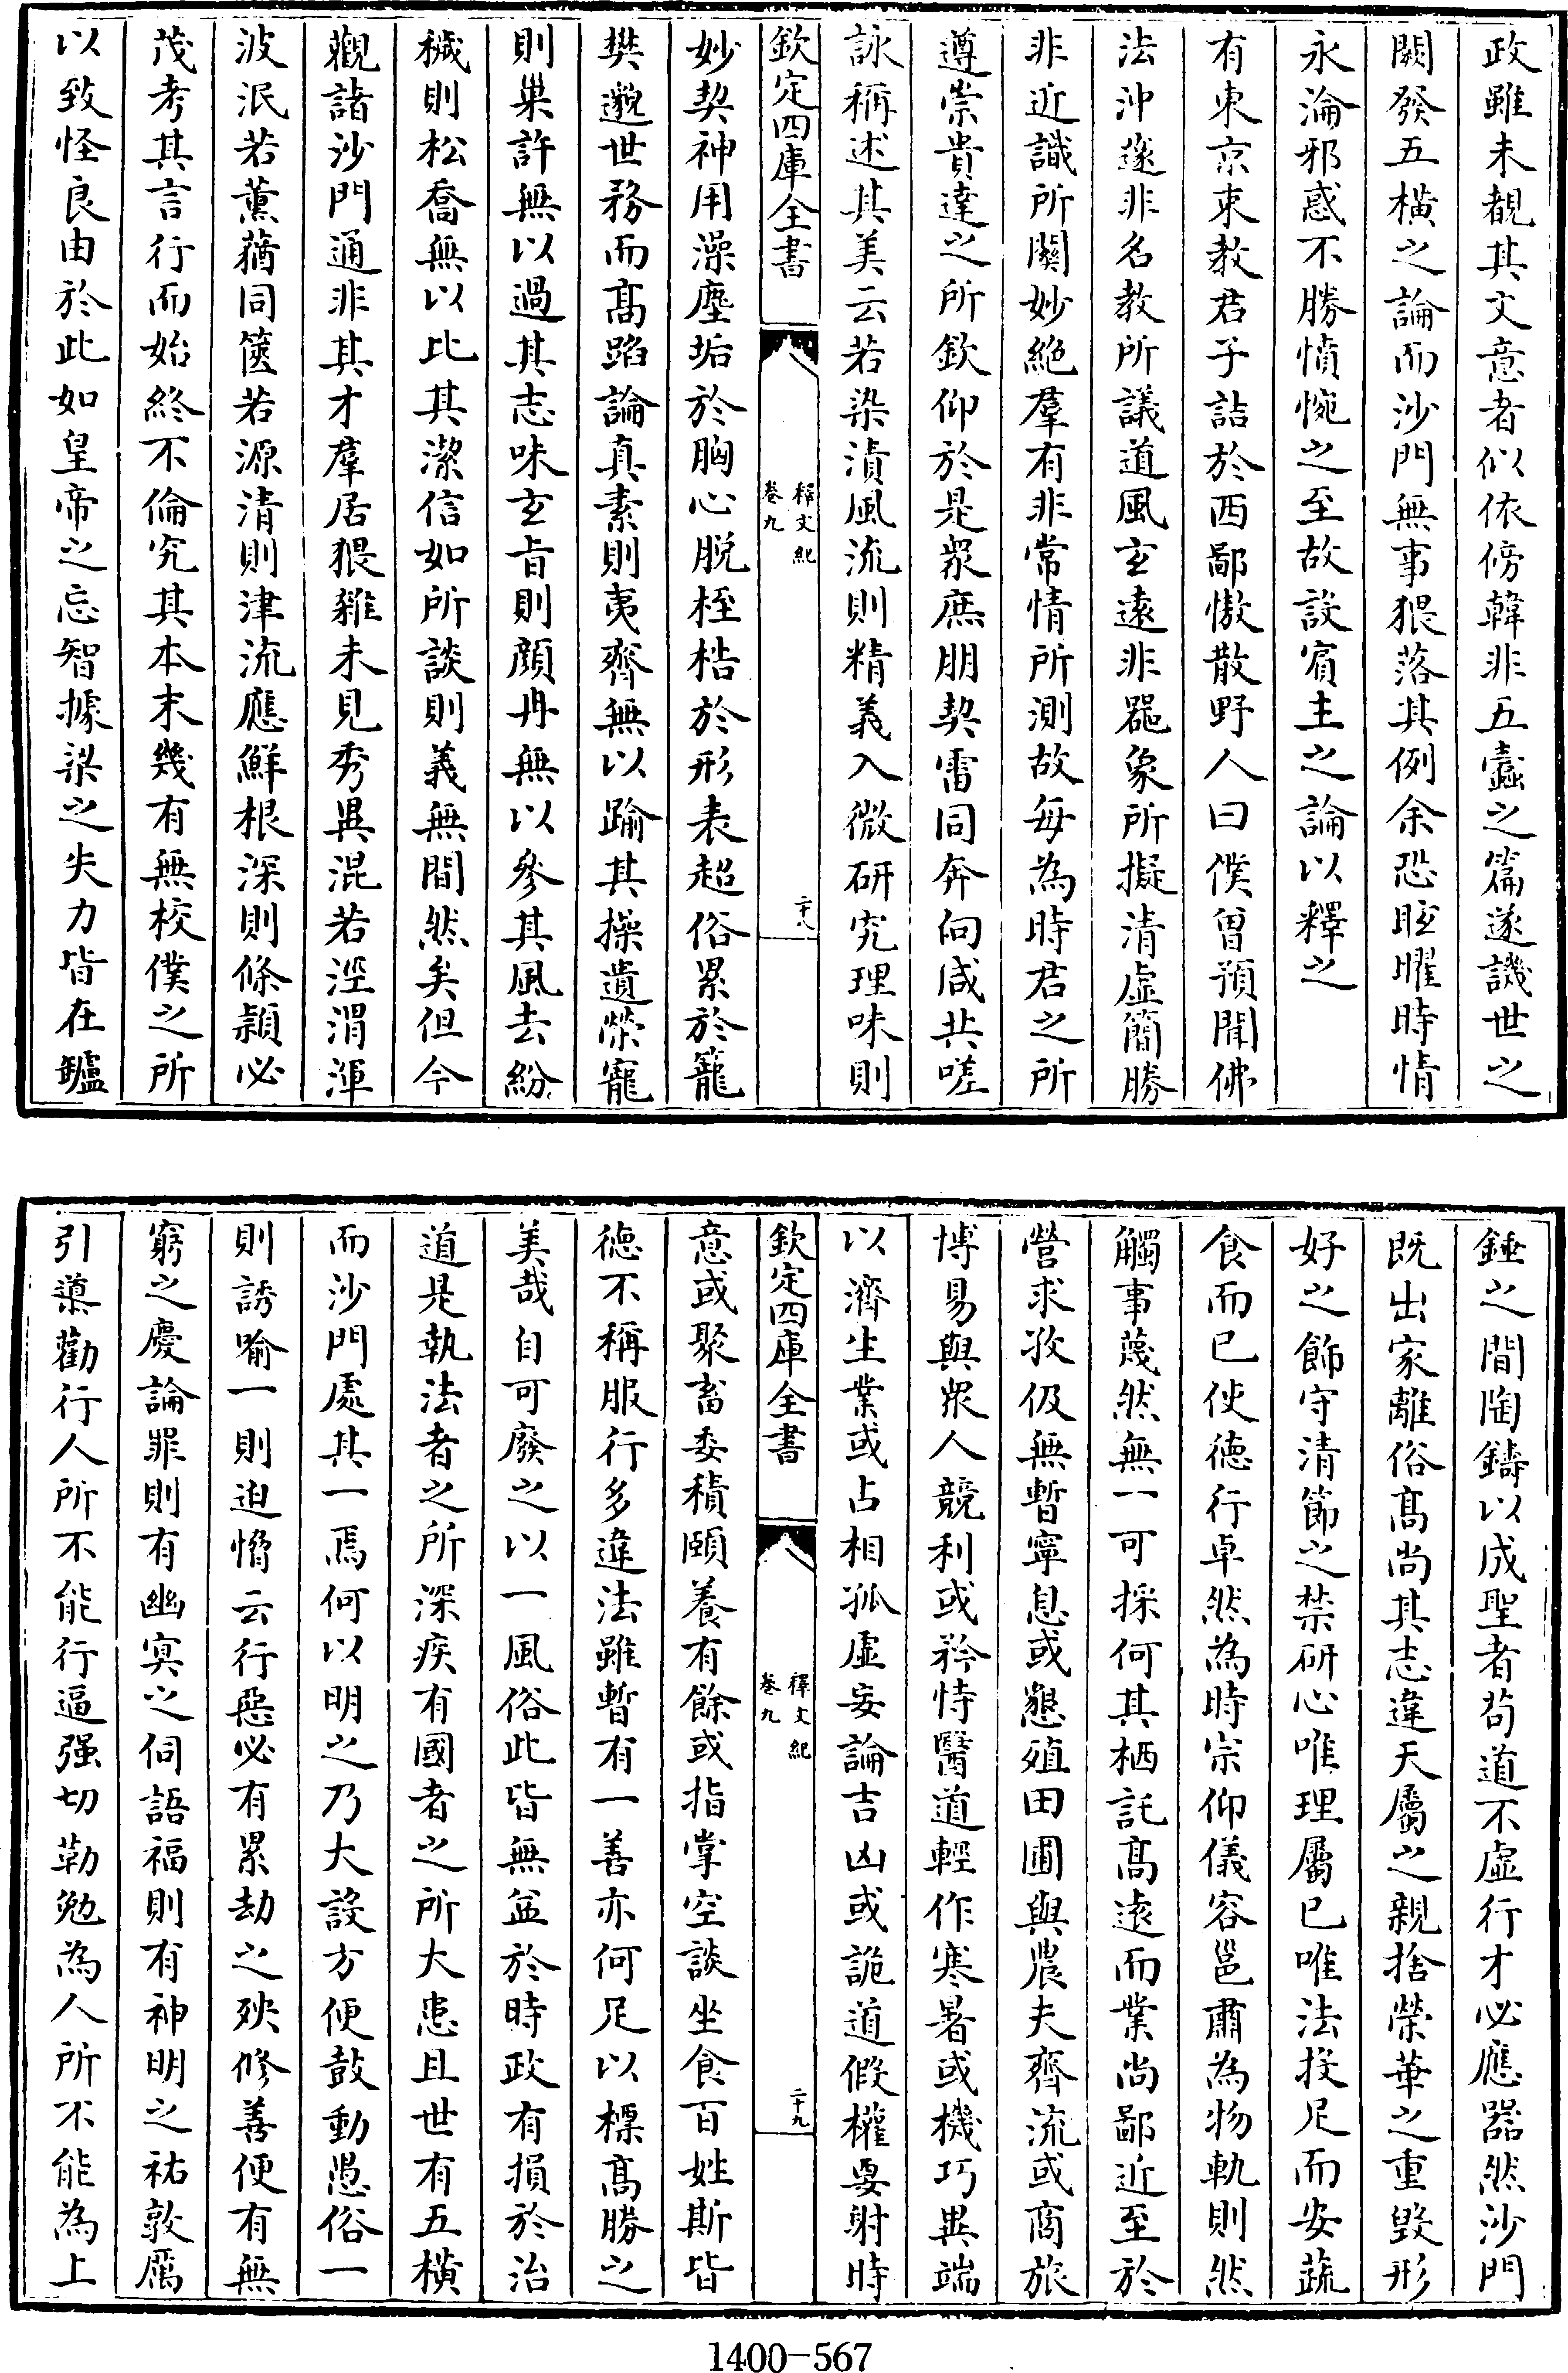 政雖未覩其文意者似依傍韓非五蠹之篇遂譏世之
闕發五橫之論而沙門無事猥落其例余恐眩曜時情
永淪邪惑不勝憤惋之至故設賓主之論以釋之
有東京束教君子詰於西鄙傲散野人曰僕曾預聞佛
法沖邃非名教所議道風玄遠非器象所擬清虛簡勝
非近識所關妙絶羣有非常情所測故每為時君之所
遵崇貴達之所欽仰於是衆庶朋契雷同奔向咸共嗟
詠稱述其美云若染漬風流則精義入微研究理味則
欽定四庫全書
釋文紀
卷九
二十八
妙契神用澡塵垢於胸心脱桎梏於形表超俗累於籠
樊邈世務而髙蹈論真素則夷齊無以踰其操遺榮寵
則巢許無以過其志味玄旨則顔冉無以參其風去紛
穢則松喬無以比其潔信如所談則義無間然矣但今
觀諸沙門通非其才羣居猥雜未見秀異混若涇渭渾
波泯若薫蕕同篋若源清則津流應鮮根深則條穎必
茂考其言行而始終不倫究其本末幾有無校僕之所
以致怪良由於此如皇帝之忘智據梁之失力皆在鑪
錘之間陶鑄以成聖者苟道不虛行才必應器然沙門
既出家離俗髙尚其志違天屬之親捨榮華之重毀形
好之飾守清節之禁研心唯理屬已唯法投足而安蔬
食而已使徳行卓然為時宗仰儀容邕肅為物軌則然
觸事蔑然無一可採何其栖託髙逺而業尚鄙近至於
營求孜伋無暫寧息或懇殖田圃與農夫齊流或商旅
博易與衆人競利或矜恃醫道輕作寒暑或機巧異端
以濟生業或占相孤虛妄論吉凶或詭道假權要射時
欽定四庫全書
釋文紀
卷九
二十九
意或聚畜委積頤養有餘或指掌空談坐食百姓斯皆
徳不稱服行多違法雖暫有一善亦何足以標髙勝之
美哉自可廢之以一風俗此皆無益於時政有損於治
道是執法者之所深疾有國者之所大患且世有五橫
而沙門處其一焉何以明之乃大設方便鼓動愚俗一
則誘喻一則迫愶云行惡必有累劫之殃修善便有無
窮之慶論罪則有幽冥之伺語福則有神明之祐敦厲
引導勸行人所不能行逼强切勒勉為人所不能為上
1400-567